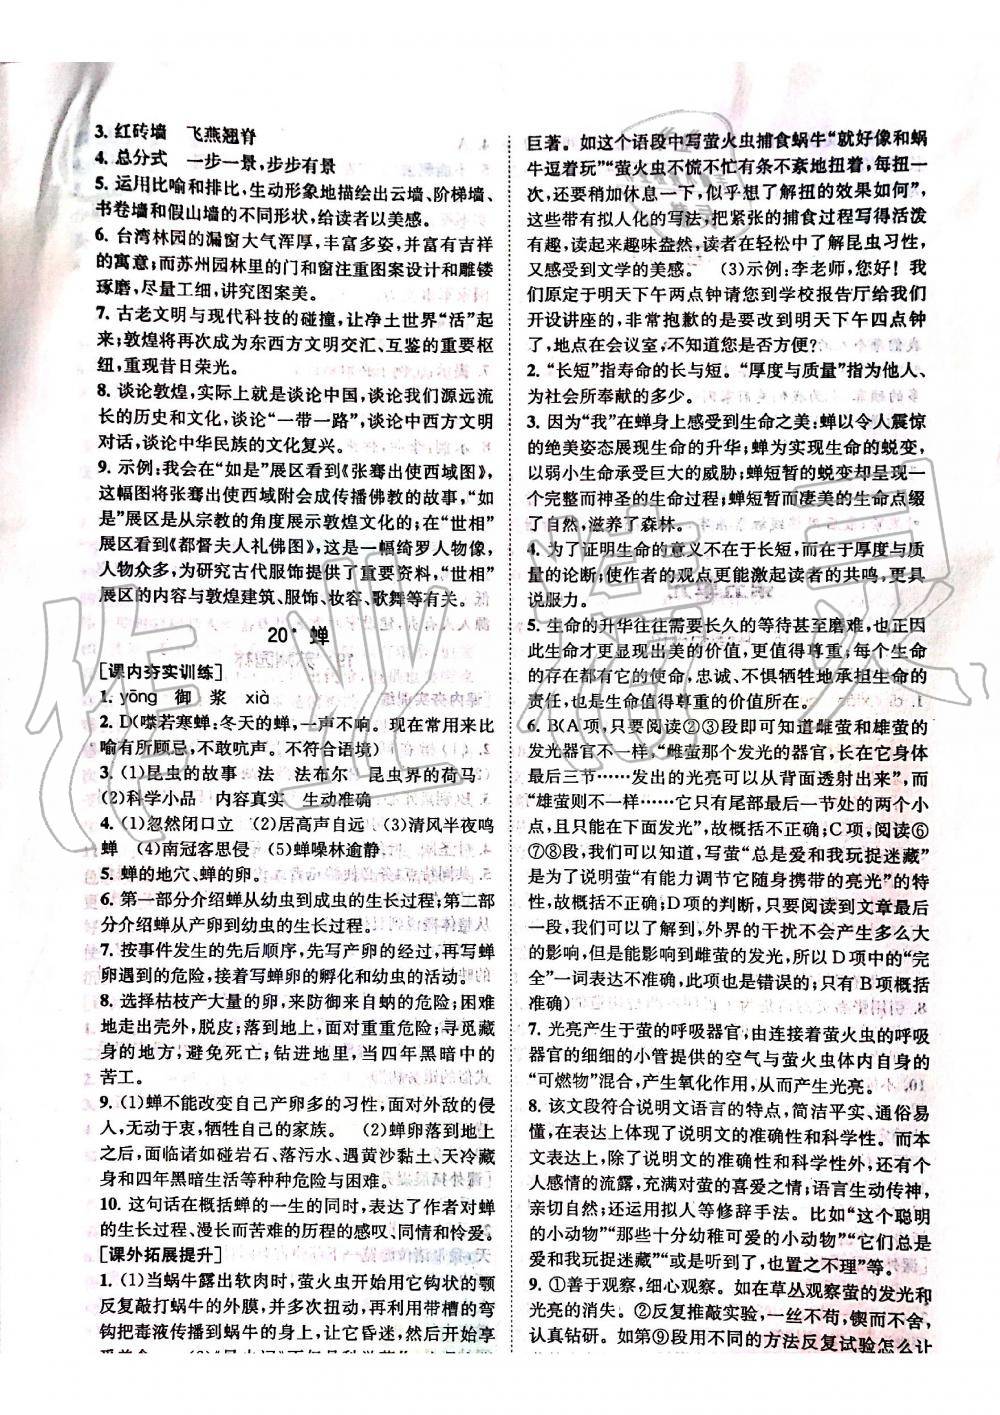 3. 红砖墙　飞燕翘脊
4. 总分式　一步一景,步步有景
5. 运用比喻和排比,生动形象地描绘出云墙、阶梯墙、
书卷墙和假山墙的不同形状,给读者以美感。
6. 台湾林园的漏窗大气浑厚,丰富多姿,并富有吉祥
的寓意;而苏州园林里的门和窗注重图案设计和雕镂
琢磨,尽量工细,讲究图案美。
7. 古老文明与现代科技的碰撞,让净土世界“活”起
来;敦煌将再次成为东西方文明交汇、互鉴的重要枢
纽,重现昔日荣光。
8. 谈论敦煌,实际上就是谈论中国,谈论我们源远流
长的历史和文化,谈论“一带一路”,谈论中西方文明
对话,谈论中华民族的文化复兴。
9. 示例:我会在“如是”展区看到《张骞出使西域图》,
这幅图将张骞出使西域附会成传播佛教的故事,“如
是”展区是从宗教的角度展示敦煌文化的;在“世相”
展区看到《都督夫人礼佛图》,这是一幅绮罗人物像,
人物众多,为研究古代服饰提供了重要资料,“世相”
展区的内容与敦煌建筑、服饰、妆容、歌舞等有关。
20* 蝉
[课内夯实训练]
1. yōng　御　浆　xià
2. D(噤若寒蝉:冬天的蝉,一声不响。现在常用来比
喻有所顾忌,不敢吭声。不符合语境)
3. (1)昆虫的故事　法　法布尔　昆虫界的荷马
(2)科学小品　内容真实　生动准确
4. (1)忽然闭口立　(2)居高声自远　(3)清风半夜鸣
蝉　(4)南冠客思侵　(5)蝉噪林逾静
5. 蝉的地穴、蝉的卵。
6. 第一部分介绍蝉从幼虫到成虫的生长过程;第二部
分介绍蝉从产卵到幼虫的生长过程。
7. 按事件发生的先后顺序,先写产卵的经过,再写蝉
卵遇到的危险,接着写蝉卵的孵化和幼虫的活动。
8. 选择枯枝产大量的卵,来防御来自蚋的危险;困难
地走出壳外,脱皮;落到地上,面对重重危险;寻觅藏
身的地方,避免死亡;钻进地洞,当四年黑暗中的
苦工。
9. (1)蝉不能改变自己产卵多的习性,面对外敌的侵
入,无动于衷,牺牲自己的家族。　(2)蝉卵落到地上
之后,面临诸如碰岩石、落污水、遇黄沙黏土、天冷藏
身和四年黑暗生活等种种危险与困难。
10. 这句话在概括蝉的一生的同时,表达了作者对蝉
的生长过程、漫长而苦难的历程的感叹、同情和怜爱。
[课外拓展提升]
1. (1)当蜗牛露出软肉时,萤火虫开始用它钩状的颚
反复敲打蜗牛的外膜,并多次扭动,再利用带槽的弯
钩把毒液传播到蜗牛的身上,让它昏迷,然后开始享
受美食　(2)《昆虫记》不但是科学著作
巨著。如这个语段中写萤火虫捕食蜗牛“就好像和蜗
牛逗着玩”“萤火虫不慌不忙有条不紊地扭着,每扭一
次,还要稍稍休息一下,似乎想了解扭的效果如何”,
这些带有拟人化的写法,把紧张的捕食过程写得活泼
有趣,读起来趣味盎然,读者在轻松中了解昆虫习性,
又感受到文学的美感。　(3)示例:李老师,您好!我
们原定于明天下午两点钟请您到学校报告厅给我们
开设讲座的,非常抱歉的是要改到明天下午四点钟
了,地点在会议室,不知您是否方便?
2. “长短”指寿命的长与短。“厚度与质量”指为他人、
为社会所奉献的多少。
3. 因为“我”在蝉身上感受到生命之美;蝉以令人震惊
的绝美姿态展现生命的升华;蝉为实现生命的蜕变,
以弱小生命承受巨大的威胁;蝉短暂的蜕变中展现了
一个完整而神圣的生命过程;蝉短暂而凄美的生命点缀
了自然,滋养了森林。
4. 为了证明生命的意义不在于长短,而在于厚度与质
量的论断;使作者的观点更能激起读者的共鸣,更具
说服力。
5. 生命的升华往往需要长久的等待甚至磨难,也正因
此生命才更能展现出美的价值,更值得尊重;每个生命
的存在都有它的使命,忠诚、不惧牺牲地承担生命的
责任,也是生命值得尊重的价值所在。
6. B(A项,只要阅读②③段即可知道雌萤和雄萤的
发光器官不一样,“雌萤那个发光的器官,长在它身体
最后三节……发出的光亮可以从背面透射出来”,而
“雄萤则不一样……它只有尾部最后一节处的两个小
点,且只能在下面发光”,故概括不正确;C项,阅读⑥
⑦⑧段,我们可以知道,写萤“总是爱和我玩捉迷藏”
是为了说明萤“有能力调节它随身携带的亮光”的特
性,故概括不正确;D项的判断,只要阅读到文章最后
一段,我们可以了解到,外界的干扰不会产生多么大
的影响,但是能影响到雌萤的发光,所以D项中的“完
全”一词表达不准确,此项也是错误的;只有B项概括
准确)
7. 光亮产生于萤的呼吸器官,由连接着萤火虫的呼吸
器官的细细的小管提供的空气与萤火虫体内自身的
“可燃物”混合,产生氧化作用,从而产生光亮。
8. 该文段符合说明文语言的特点,简洁平实、通俗易
懂,在表达上体现了说明文的准确性和科学性。而本
文在表达上,除了说明文的准确性和科学性外,还有个
人感情的流露,充满对萤的喜爱;语言生动传神,
亲切自然;还运用拟人等修辞手法。比如“这个聪明
的小动物”“那些十分幼稚可爱的小动物”“它们总是
爱和我玩捉迷藏”“或是听到了,也置之不理”等。
9. ①善于观察,细心观察。如在草丛观察萤的发光和
光亮的消失。②反复推敲实验,一丝不苟,锲而不舍,
认真钻研。如第⑨段用不同的方法反复试验怎么让